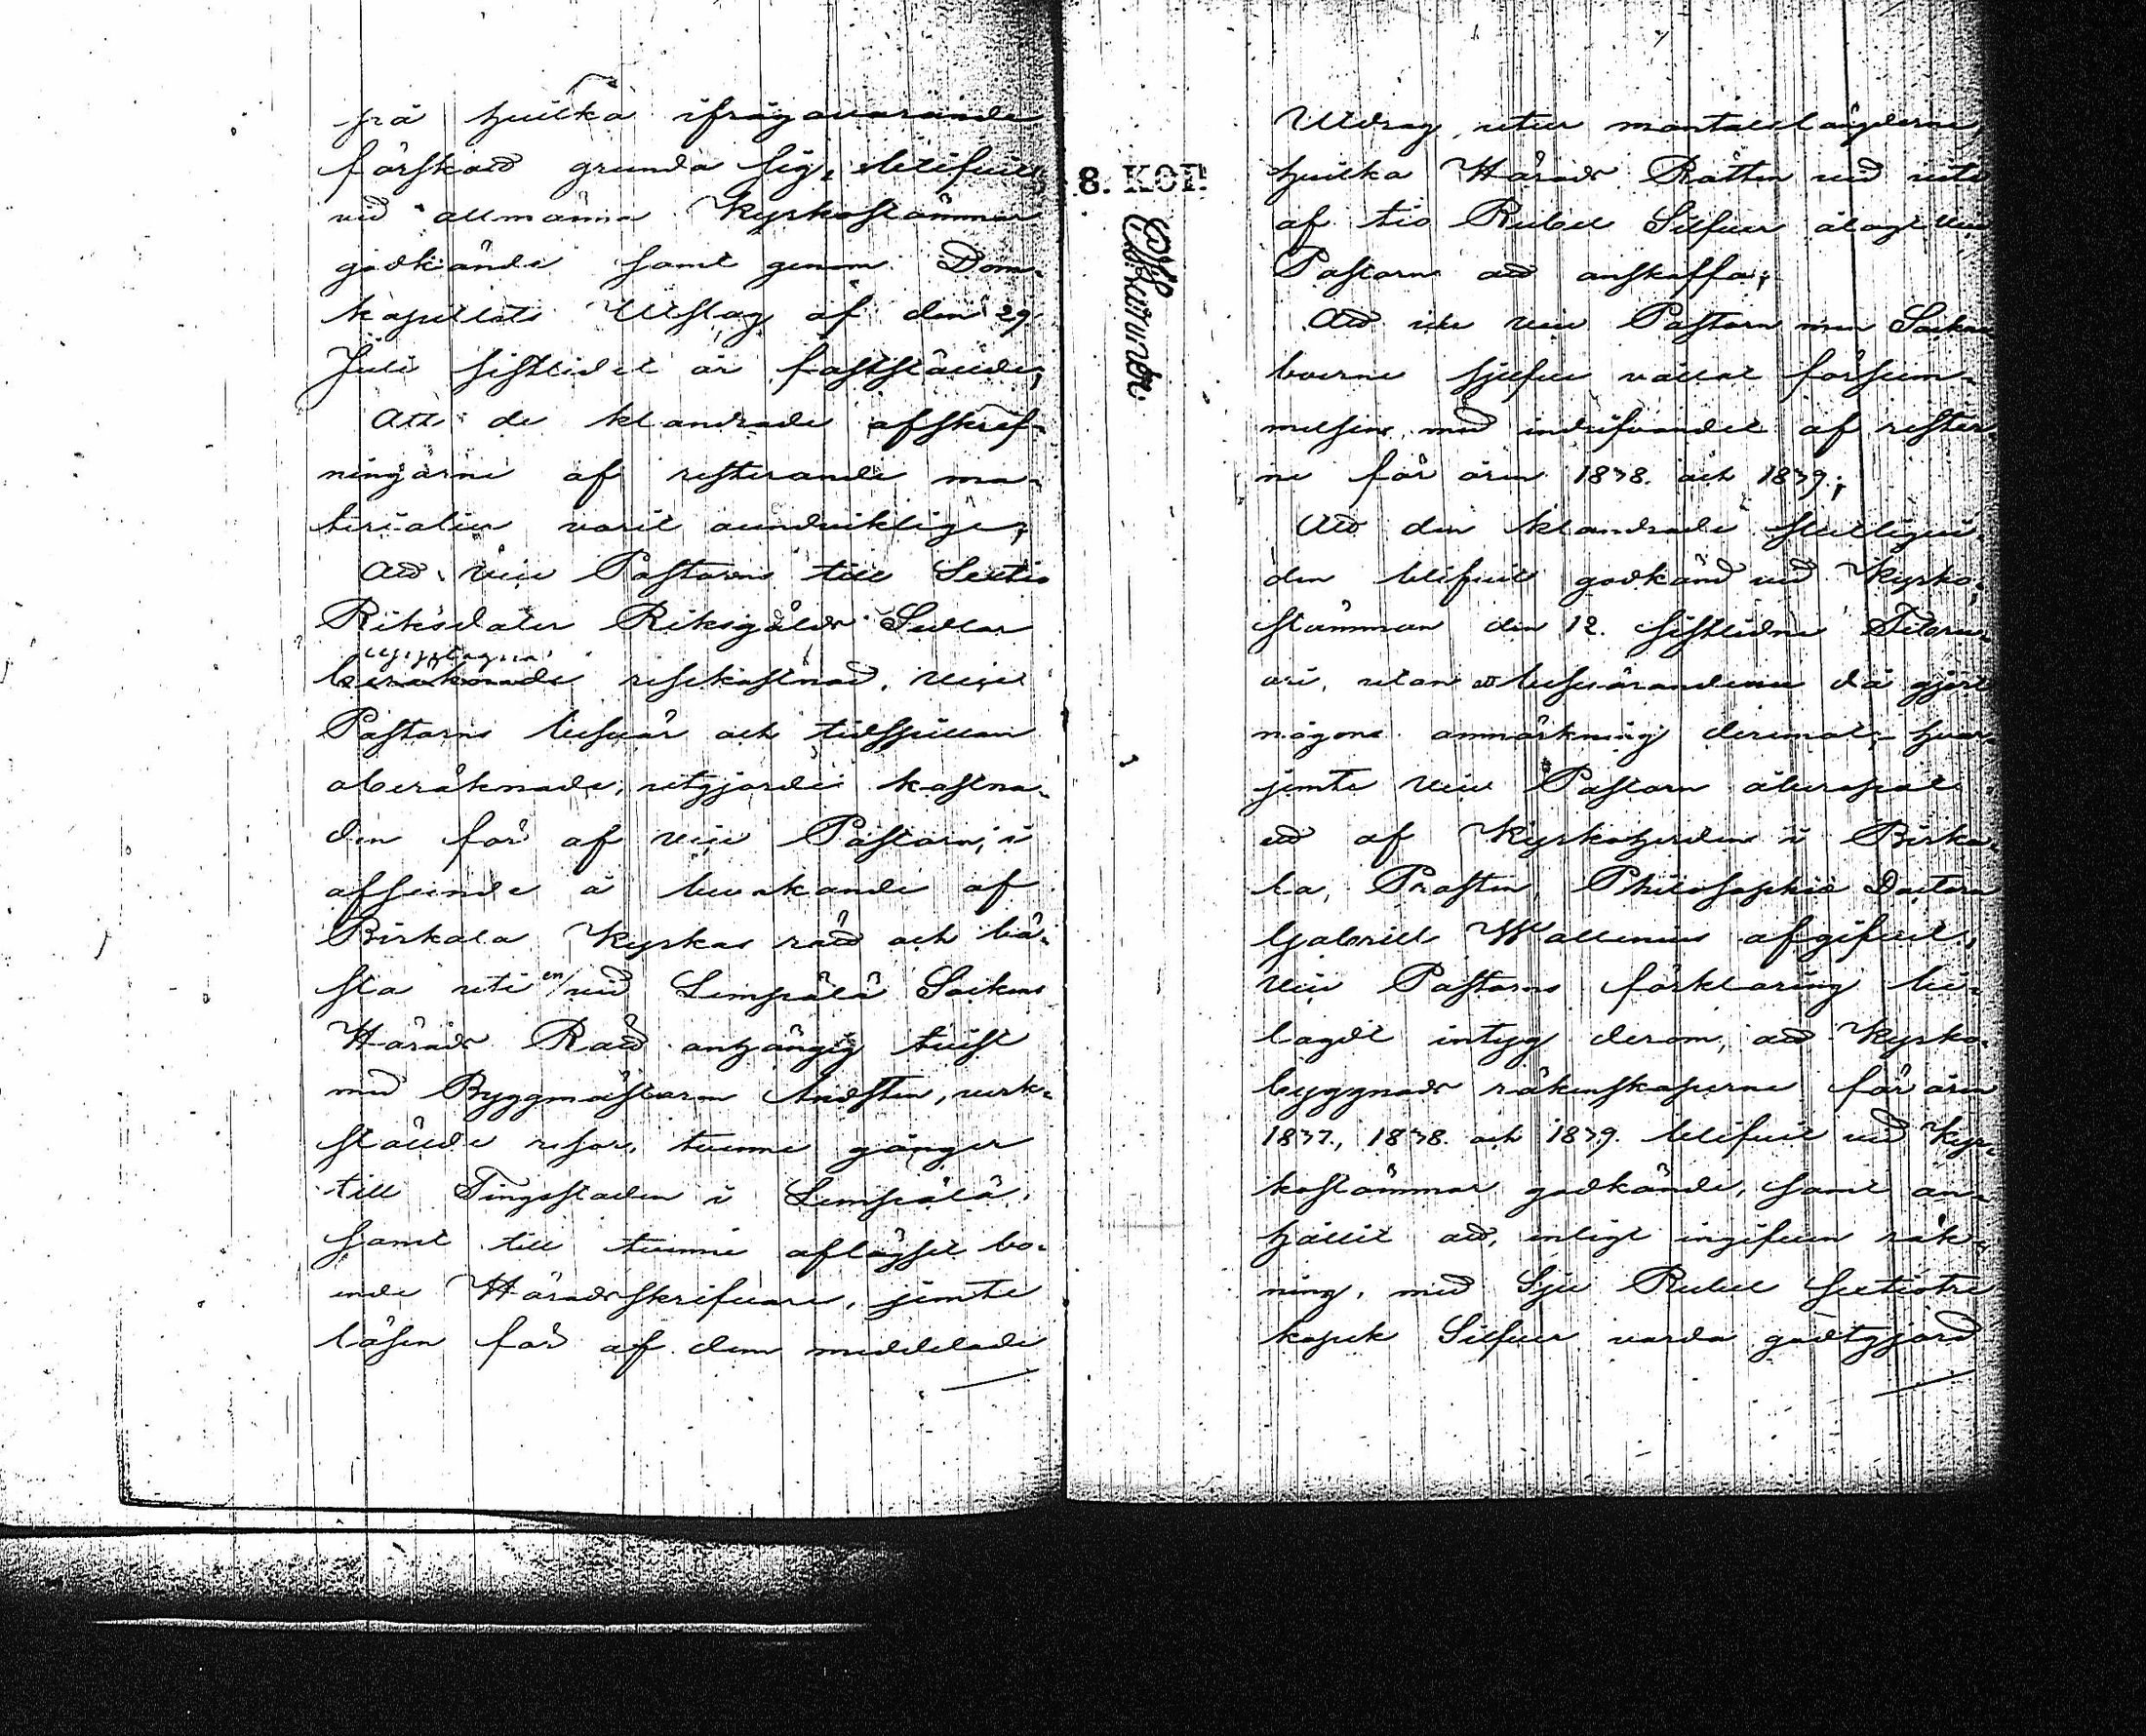 på hvilka ifrågavarande
förskott grunda sig, blifvit
vid allmänna Kyrkostämmor
godkände samt genom Dom-
kapitlets Utslag af den 29
Juli sistlidet år fastställde;
Att de klandrade afskrif-
ningarne af resterande ma-
terialier varit oundviklige;
Att Vice Pastorn till Sextio
Riksdaler Riksgälds Sedlar
uppstagna
beräknade resekostnad, Vice
Pastorns besvär och tidsspillan
oberäknade, utgjorde kostna-
den för af Vice Pastorn, i
afseende å bevakande af
Birkala Kyrkas rätt och bä-
sta uti en vid Lempälä Sockens
Härads Rätt anhängig tvist
med Byggmästaren Andsten, verk-
stälde resor, tvenne gånger
till Tingsstaden i Lempälä,
samt till tvenne aflägset bo-
ende Häradsskrifvare, jemte
lösen för af dem meddelade
8. KOP.
Utdrag utur mantalslängderne,
hvilka Härads Rätten vid vite
af tio Rubel Silfver ålagt Vice
Pastorn att anskaffa;
Att icke Vice Pastorn men Sockne
boerne sjelfve vållat försum-
melsen med indrifvandet af rester-
ne för åren 1838. och 1839.;
Att den klandrade
den blifvit godkänd vid Kyrko-
stämman den 12. sistlidne Febru-
ari, utan att besvärandena då gjort
någon anmärkning deremot, hvar-
jemte Vice Pastorn åberopat
ett af Kyrkoherden i Birka-
la, Prosten, Philosophie Doctorn
Gabriel Wallenius afgifvet,
Vice Pastorns förklaring bi-
lagdt intyg derom, att Kyrko-
byggnads räkenskaperne för åren
1837., 1838. och 1839. blifvit vid Kyr-
kostämmor godkände, samt an-
hållit att, enligt ingifven räk-
ning, med Sju Rubel sextiotre
kopek Silfver varda godtgjord